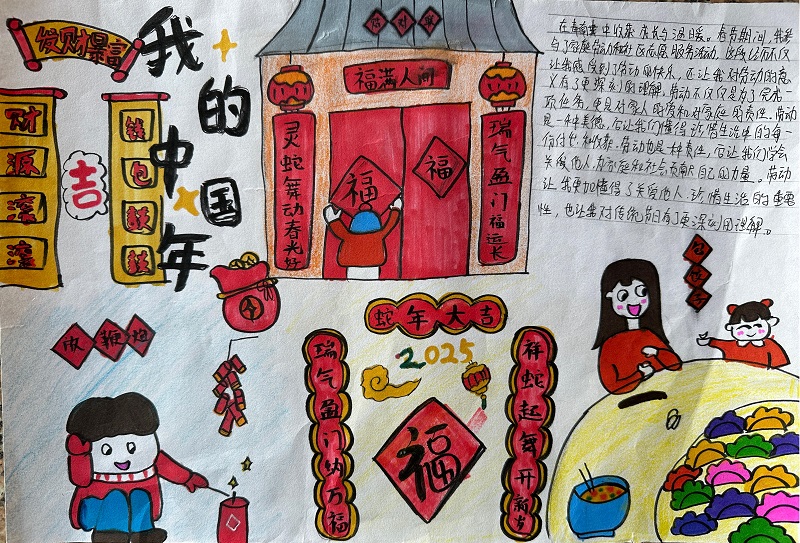 发财暴富
财源滚滚
吉
钱包鼓鼓
我的中国年
贴对联
福满人间
灵蛇舞动春光好
瑞气盈门福运长
福
福
放鞭炮
蛇年大吉
2025
瑞气盈门纳万福
祥蛇起舞开新岁
福
包饺子
让我感受到了劳动的快乐，还让我对劳动的意
义有了更深刻的理解。劳动不仅仅是为了完成一
项任务，更是对家人的爱和对家庭的责任。劳动
是一种美德，它让我们懂得珍惜生活中的每一
份付出和收获。劳动也是一种责任，它让我们学会
关爱他人，为家庭和社会贡献自己的力量。劳动
让我更加懂得了关爱他人、珍惜生活的重要
性，也让我对传统节日有了更深刻的理解。